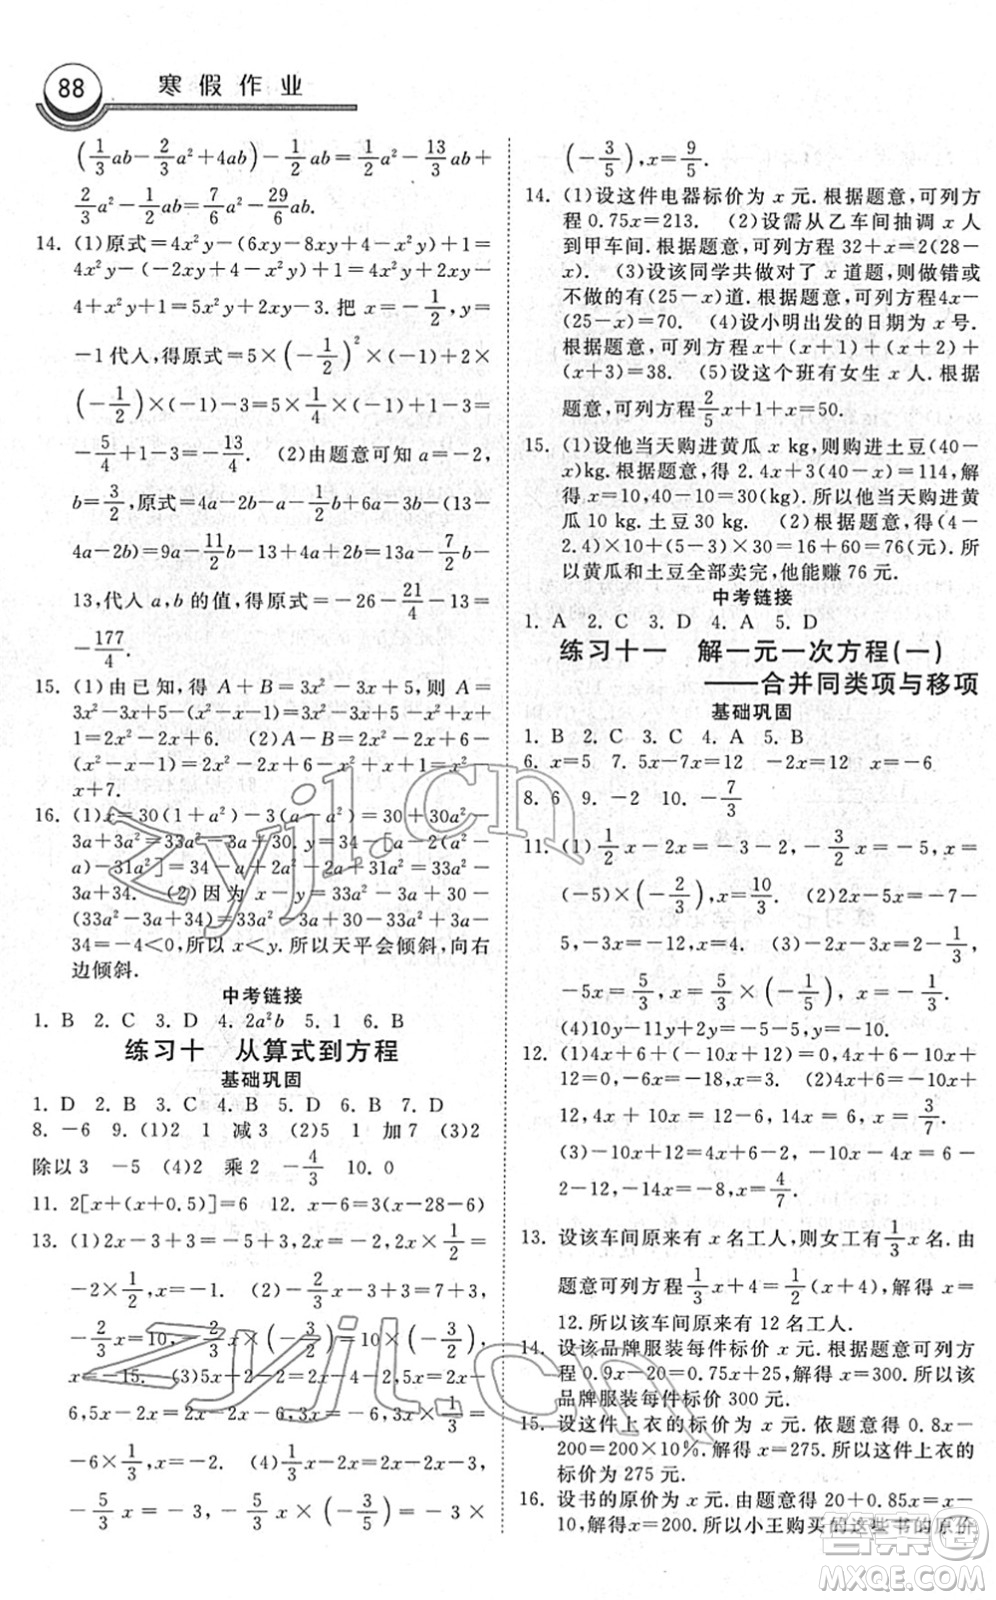 88 寒假作业
(1/3ab-2/3a²+4ab)-1/2ab=1/2a²-13/3ab+
2/3a²-1/2ab=7/6a²-29/6ab.
14. (1)原式=4x²y-(6xy-8xy-4+x²y+1)=
4x²y-(-2xy+x²y-3)=
4+x²y+1=5x²y+2xy-3.把 x=-1/2,y=
-1代人,得原式=5×(-1/2)²×(-1)+2×
(-1/2)×(-1)-3=5×1/4×(-1)+1-3=
-5/4+1-3=-13/4. (2)由题意可知 a=-2,
b=3/2,原式=4a-2b-a-1/2b-(13-
4a-2b)=9a-11/2b-13
13,代人 a,b 的值,得原式=-26-21/4-13=
-177/4.
15. (1)由已知,得 A+B=3x²-3x+5,则 A=
3x²-3x+5-(x²-x-1)=3x²-3x+5-x²+x
+1=2x²-2x+6. (2)A-B=2x²-2x+6-
(x²-x-1)=2x²-2x+6-x²+x+1=x²-
x+7.
16. (1)x=30(1+a²)-3(a-a²)=30+30a²-
3a+3a²=33a²-3a+34.
a)-31a²]=34
3a+34. (2)因为
(33a²-3a+34)
34=-4<0,所以 x<y.所以天平会倾斜,向右
边倾斜.
中考链接
1. B 2. C 3. D 4. 2a²b 5. 1 6. B
练习十 从算式到方程
基础巩固
1. D 2. B 3. C 4. B 5. B 6. B 7. D
8. -6 9. (1)2 1 减3 (2)5 1 加7 (3)2
除以3 -5 (4)2 乘2 -4/3 10. 0
11. 2[x+(x+0.5)]=6 12. x-6=3(x-28-6)
13. (1)2x-3+3=-5+3,2x=-2,2x×1/2=
-2×1/2,x=-1. (2)-2/3x-3+3=7+3,
-2/3x=10,-2/3x×(-3/2)=10×(-3/2),
x=-15. (3)5x+2-2=2x-4-2,5x=2x-
6,5x-2x=2x-6-2x,3x=-6,3x×1/3=
-6×1/3,x=-2.
-5/3x=-3,-5/3x×(-3/5)=-3×
(-3/5),x=9/5.
14. (1)设这件电器标价为 x 元.根据题意,可列方
程 0.75x=213. (2)设需从乙车间抽调 x 人
到甲车间.根据题意,可列方程 32+x=2(28-
x). (3)设该同学共做对了 x 道题,则做错或
不做的有(25-x)道.根据题意,可列方程4x-
(25-x)=70. (4)设小明出发的日期为 x 号.
根据题意,可列方程 x+(x+1)+(x+2)+
(x+3)=38. (5)设这个班有女生 x 人.根据
题意,可列方程2/5x+1+x=50.
15. (1)设他当天购进黄瓜 x kg,则购进土豆(40-
x)kg.根据题意,得 2.4x+3(40-x)=114,解
得 x=10,40-10=30(kg).所以他当天购进黄
瓜 10 kg.土豆 30 kg. (2)根据题意,得(4-
2.4)×10+(5-3)×30=16+60=76(元).所
以黄瓜和土豆全部卖完,他能赚 76 元.
中考链接
1. A 2. C 3. D 4. A 5. D
练习十一 解一元一次方程(一)
——合并同类项与移项
基础巩固
1. B 2. C 3. C 4. A 5. B
6. x=5 7. 5x-7x=12 -2x=12 x=-6
8. 6 9. -2 10. -7/3
11. (1)1/2x-2x=-3-2,-3/2x=-5,x=
(-5)×(-2/3),x=10/3. (2)2x-5x=-7-
5,-3x=-12,x=4. (3)-2x-3x=2-1/3,
-5x=5/3,x=5/3×(-1/5),x=-1/3.
(4)10y-11y+2y=0,y=0.
12. (1)4x+6x-10x+12x=0+12,12x=12,x=1. (2)4x+6x-10x+
12x+2x=12-6,14x=6,x=3/7.
(3)-10x-10x+6x=-6-
2,-14x=-8,x=4/7.
13. 设该车间原来有 x 名工人,则女工有1/3x名.由
题意可列方程1/3x+4=1/2(x+4),解得 x=
12.所以该车间原来有 12 名工人.
14. 设该品牌服装每件标价为 x 元.根据题意,得
0.9x-20=0.75x+25,解得 x=300.所以该
品牌服装每件标价 300 元.
15. 设这件上衣的标价为 x 元. 依题意得 0.8x-
200=200×10%.解得 x=275.所以这件上衣的
标价为 275 元.
16. 设书的原价为 x 元.由题意得20+0.85x=x-
10,解得x=200.所以小王购买的这些书的原价
zyjl.cn
zyjl.cn
答案圈
MXQE.COM